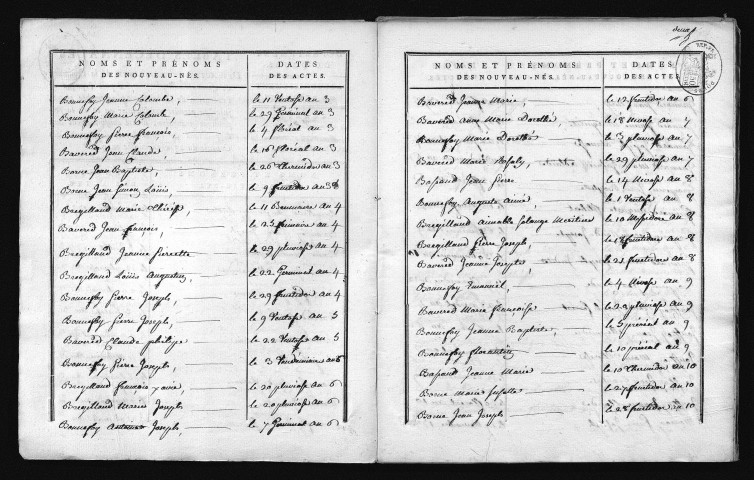 NOMS ET PRÉNOMS
DES NOUVEAU-NÉS.
DATES
DES ACTES.
Bonnefoy Jeanne Colombe, le 11 Ventose an 3
Bonnefoy Marie Colombe, le 29 Germinal an 3
Bonnefoy Pierre francois, le 4 floréal an 3
Bavered Jean Claude, le 16 floréal an 3
Borne Jean Baptiste, le 26 Thermidor an 3
Borne Jean Simon Louis, le 9 fructidor an 3
Bregilland Marie Thérèse, le 11 Brumaire an 4
Bavered Jean francois, le 25 frimaire an 4
Bregilland Jeanne Pierrette le 29 pluviose an 4
Bregilland Louis Augustin, le 22 Germinal an 4
Bonnefoy Pierre Joseph, le 29 fructidor an 4
Bonnefoy Pierre Joseph, le 9 Ventose an 5
Bavered Claude philippe le 22 Ventose an 5
Bonnefoy Pierre Joseph, le 3 Vendemiaire an 6
Bregilland francois le 20 pluviose an 6
Bregilland Marie Joseph le 20 pluviose an 6
Bonnefoy Joseph, le 7 Germinal an 6
NOMS ET PRÉNOMS
DES NOUVEAU-NÉS.
DATES
DES ACTES
Bavered Jeanne Marie, le 12 fructidor an 6
Bavered Anne Marie Dorothé le 18 Nivose an 7
Bonnefoy Marie Dorothé le 3 pluviose an 7
Bavered Marie Rosaly, le 29 pluviose an 7
Bassand Jean Pierre le 14 Nivose an 8
Bonnefoy Auguste Aimé, le 1 Ventose an 8
Bregilland Aimable Solange le 10 Messidor an 8
Bregilland Pierre Joseph, le 18 fructidor an 8
Bavered Jeanne Josephe, le 21 fructidor an 8
Bonnefoy Emanuel, le 4 Nivose an 9
Bavered Marie francoise le 22 pluviose an 9
Bonnefoy Jeanne Baptiste, le 5 préréal an 9
Bonnefoy florentin, le 10 préréal an 9
Bassand Jeanne Marie le 10 Thermidor an 10
Borne Marie le 27 fructidor an 10
Borne Jean Joseph, le 28 fructidor an 10